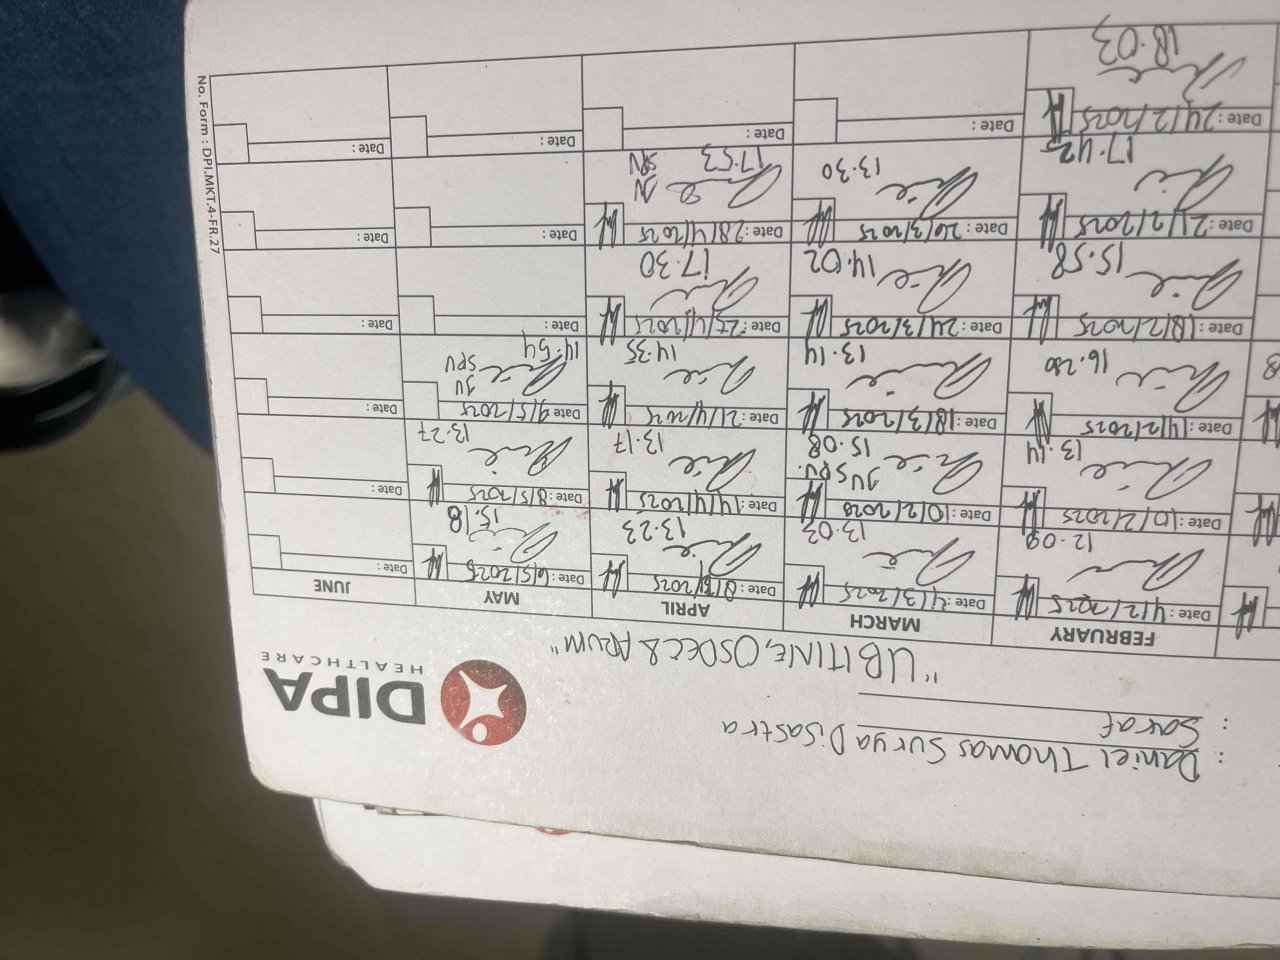 : Daniel Thomas Surya Disastra
: Saraf
DIPA
HEALTHCARE
"UBITINE, OSDEC & ARUM"
FEBRUARY MARCH APRIL MAY JUNE
Date: 4/2/2025 Date: 4/3/2025 Date: 8/4/2025 Date: 6/5/2025 Date:
12.09 13.03 13.23 15.18
Date: 10/2/2025 Date: 10/2/2020 Date: 14/4/2025 Date: 8/5/2025 Date:
13.14 JV SPV. 15.08 13.17 13.27
Date: 14/2/2025 Date: 18/3/2025 Date: 21/4/2025 Date 9/5/2025 Date:
16.20 13.14 14.35 JV SPV 14.54
Date: 18/2/2025 Date: 24/3/2025 Date: 25/4/2025 Date: Date:
15.58 14.02 17.30
Date: 21/2/2025 Date: 26/3/2025 Date: 28/4/2025 Date: Date:
17.42 13.30 17.53
Date: 24/2/2025 Date: Date: Date: Date:
18.03
No. Form : DPI.MKT.4-FR.27